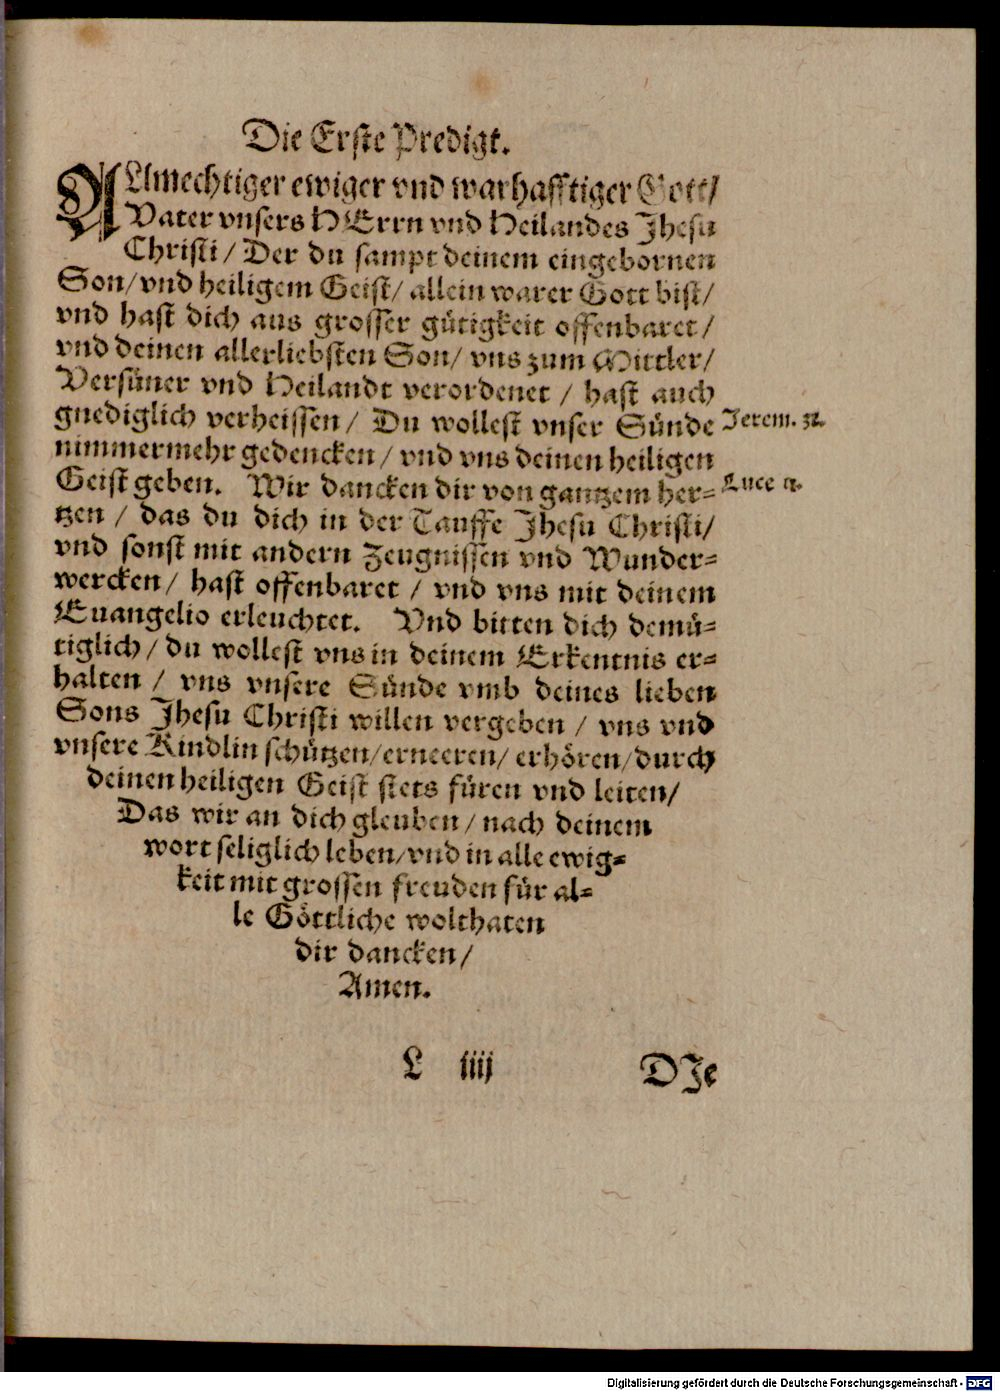 Die Erste Predigt.
ALlmechtiger ewiger vnd warhafftiger Gott/
Vater vnsers HErrn vnd Heilandes Jhesu
Christi/ Der du sampt deinem eingebornen
Son/ vnd heiligem Geist/ allein warer Gott bist/
vnd hast dich aus grosser gütigkeit offenbaret/
vnd deinen allerliebsten Son/ vns zum Mittler/
Versüner vnd Heilandt verordenet / hast auch
gnediglich verheissen/ Du wollest vnser Sünde Jerem. 31.
nimmermehr gedencken/ vnd vns deinen heiligen
Geist geben. Wir dancken dir von gantzem her= Luce 11.
tzen / das du dich in der Tauffe Jhesu Christi/
vnd sonst mit andern Zeugnissen vnd Wunder=
wercken/ hast offenbaret / vnd vns mit deinem
Euangelio erleuchtet. Vnd bitten dich demü=
tiglich/ du wollest vns in deinem Erkentnis er=
halten / vns vnsere Sünde vmb deines lieben
Sons Jhesu Christi willen vergeben / vns vnd
vnsere Kindlin schützen/ erneeren/ erhören/ durch
deinen heiligen Geist stets füren vnd leiten/
Das wir an dich gleuben/ nach deinem
wort seliglich leben/ vnd in alle ewig=
keit mit grossen freuden für al=
le Göttliche wolthaten
dir dancken/
Amen.
L iiij DJe
Digitalisierung gefördert durch die Deutsche Forschungsgemeinschaft - DFG